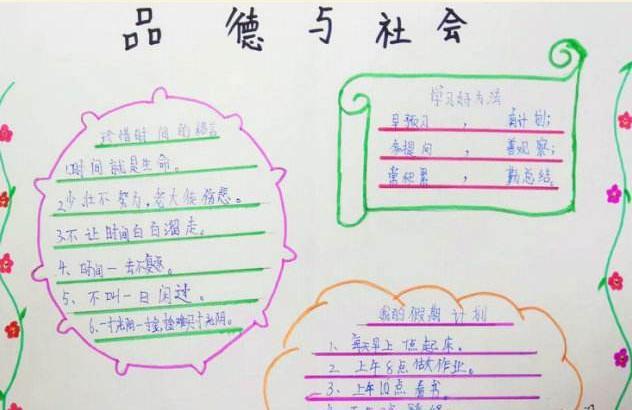 品德与社会
珍惜时间的格言
1.时间就是生命。
2.少壮不努力,老大徒伤悲。
3.不让时间白白溜走。
4、时间一去不复返。
5、不叫一日闲过。
6、一寸光阴一寸金,寸金难买寸光阴。
学习好方法
早预习,有计划;
多提问,善观察;
常积累,勤总结。
我的假期计划
1、每天早上 点起床。
2、上午8点做作业。
3、上午10点看书。